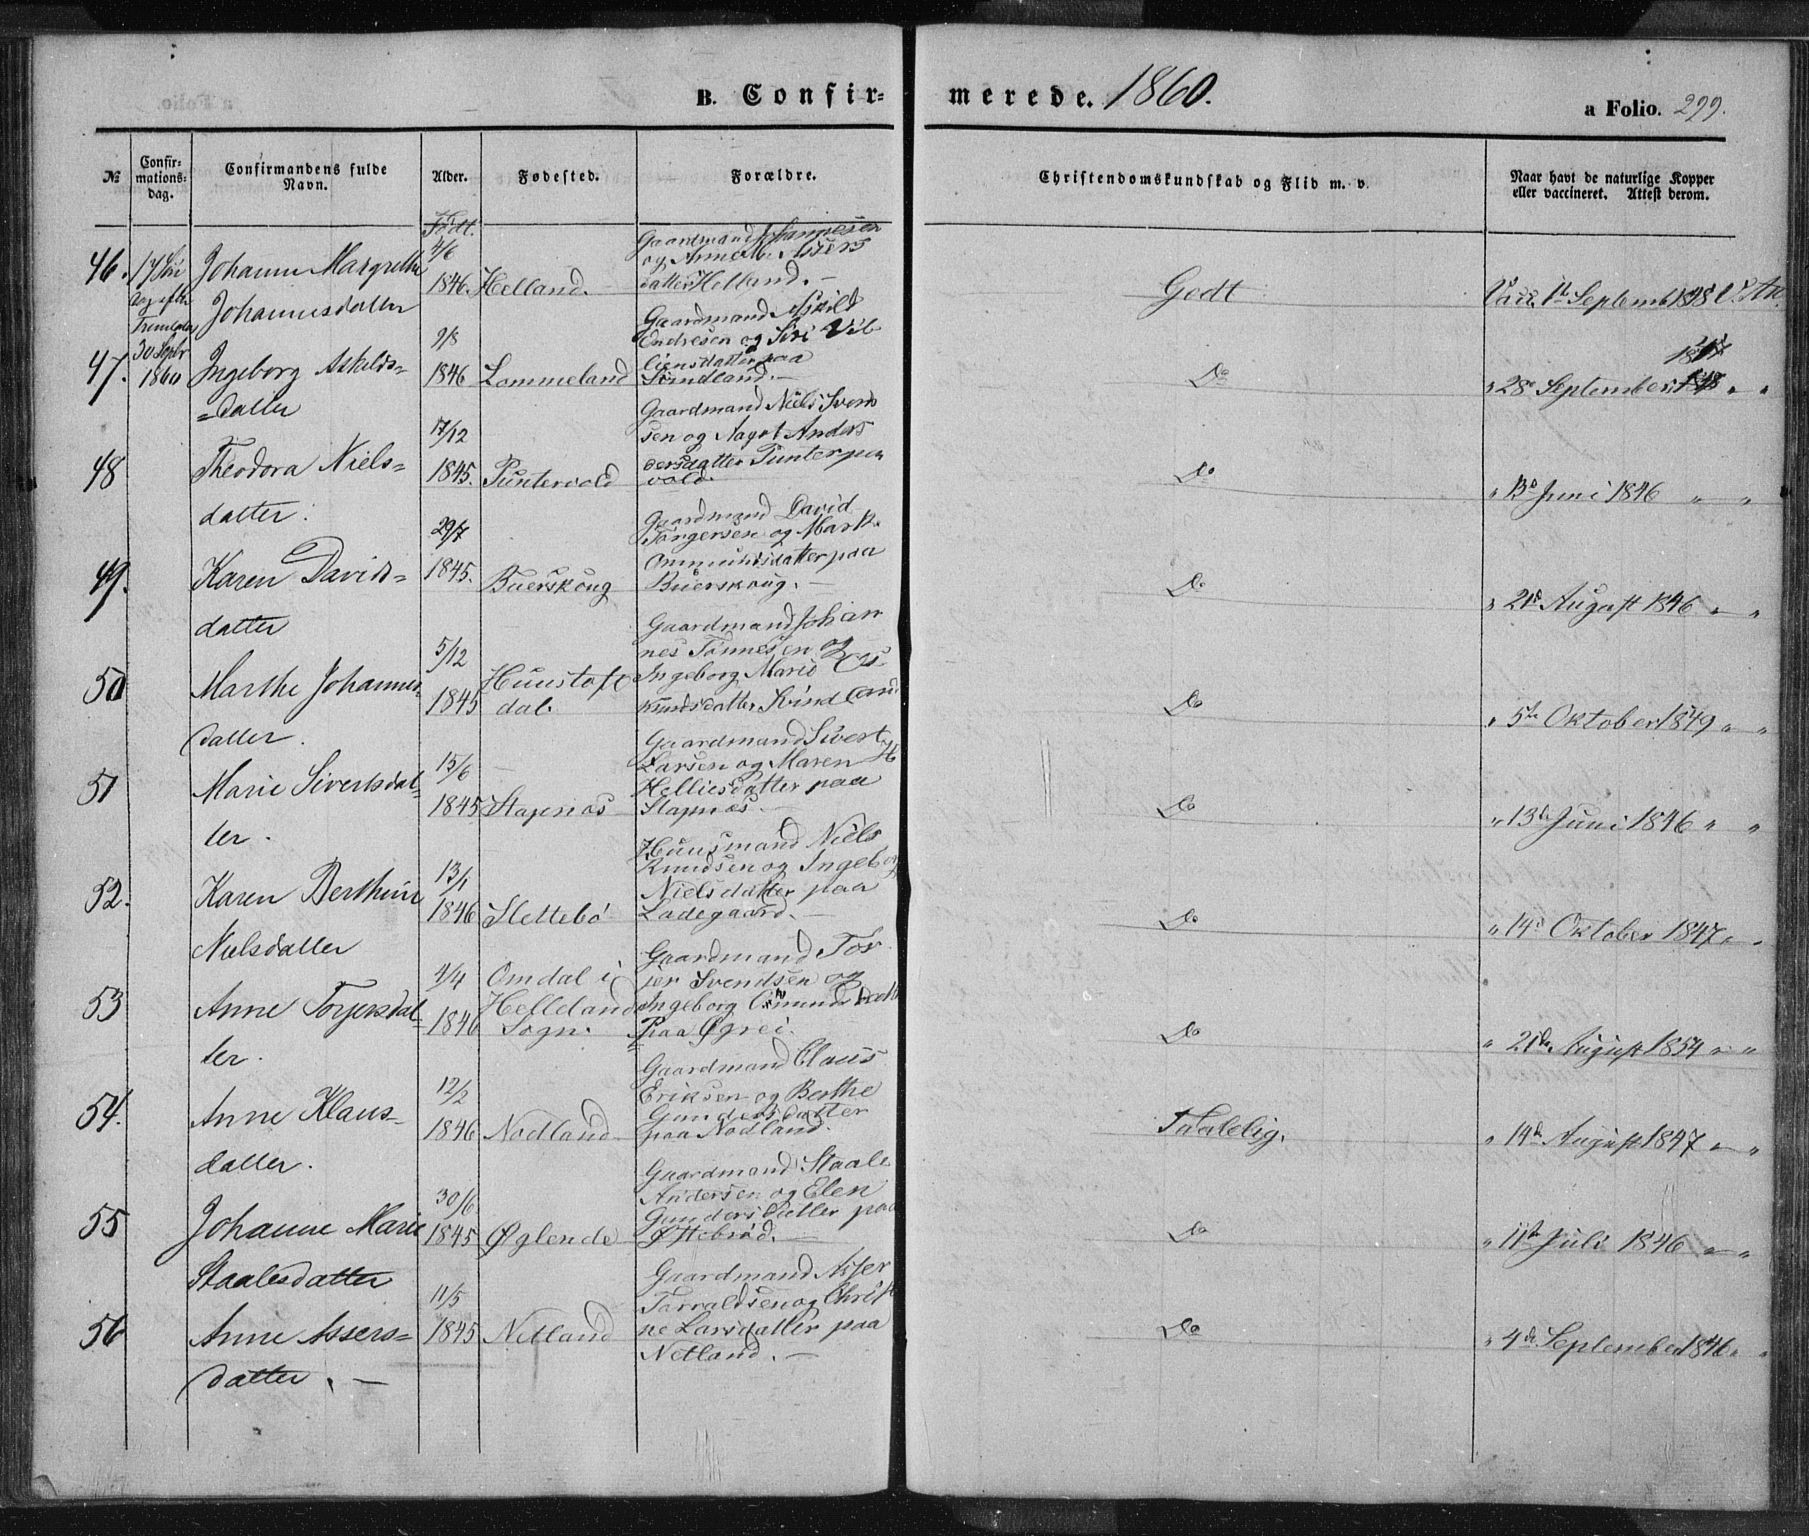 B. Confir- merede. 1860. a Folio. 299.
№ Confir-mations-dag. Confirmandens fulde Navn. Alder. Fødested. Forældre. Christendomskundskab og Flid m. v. Naar havt de naturlige Kopper eller vaccineret. Attest derom.
Født.
46. 17 Søn
Dag efter
Trinitatis
30 Septbr
1860
Johanne Margrethe
Johannesdatter
4/6
1846. Helland.
Gaardmand Johannesen
og Anne M. Assers
datter Helland. —
Godt
Vacc 1te Septemb 1848 V. At.
47. Ingeborg Askilds=
=datter
9/8
1846 Lommeland
Gaardmand Askild
Endresen og Siri Vil
liensdatter paa
Svindland. —
Do
" 28e September 1848 " "
1847
48 Theodora Niels=
datter.
17/12
1845. Puntervold
Gaardmand Niels Svend
sen og Aagot Anders
dersdatter Punter paa
vold.
Do
" 13de Juni 1846 " "
49. Karen Davids=
datter
29/7
1845. Buerskoug
Gaardmand David
Torgersen og Mark.
Ommundsdatter paa
Buerskoug. —
Do
" 21de August 1846 " "
50 Marthe Johannes
datter.
5/12
1845 Huustoft
dal.
Gaardmand Johan
nes Tönnesen og
Ingeborg Marie As
kundsdatter Svindland
Do
" 5te Oktober 1849 " "
51 Marie Sivertsdat=
ter.
15/6
1845 Stapnæs
Gaardmand Sivert
Larsen og Maren H
Helliesdatter paa
Stapnæs. —
Do
" 13de Juni 1846 " "
52. Karen Berthine
Nielsdatter
13/1
1846 Slettebö
Huusmand Niels
Knudsen og Ingeborg
Nielsdatter paa
Ladegaard. —
Do
" 14de Oktober 1847 " "
53 Anne Torjersdat=
ter.
4/4
1846 Omdal i
Helleland
Sogn.
Gaardmand Tor
jer Svendsen og
Ingeborg Omunds datt
paa Øgrei.
Do
" 21de August 1854 " "
54. Anne Klaus=
datter.
12/2
1846 Nodland.
Gaardmand Claus
Eriksen og Berthe
Gundersdatter
paa Nodland.
Taalelig.
" 14de August 1847 " "
55 Johanne Marie
Staalesdatter
30/6
1845 Øglende
Gaardmand Staale
Andersen og Elen
Gundersdatter paa
Øftebröd. —
Do
" 11te Juli 1846 " "
56 Anne Assers=
datter. —
11/5
1845 Netland
Gaardmand Asser
Tarraldsen og Christ
ne Larsdatter paa
Netland. —
Do
" 4de September 1846 " "